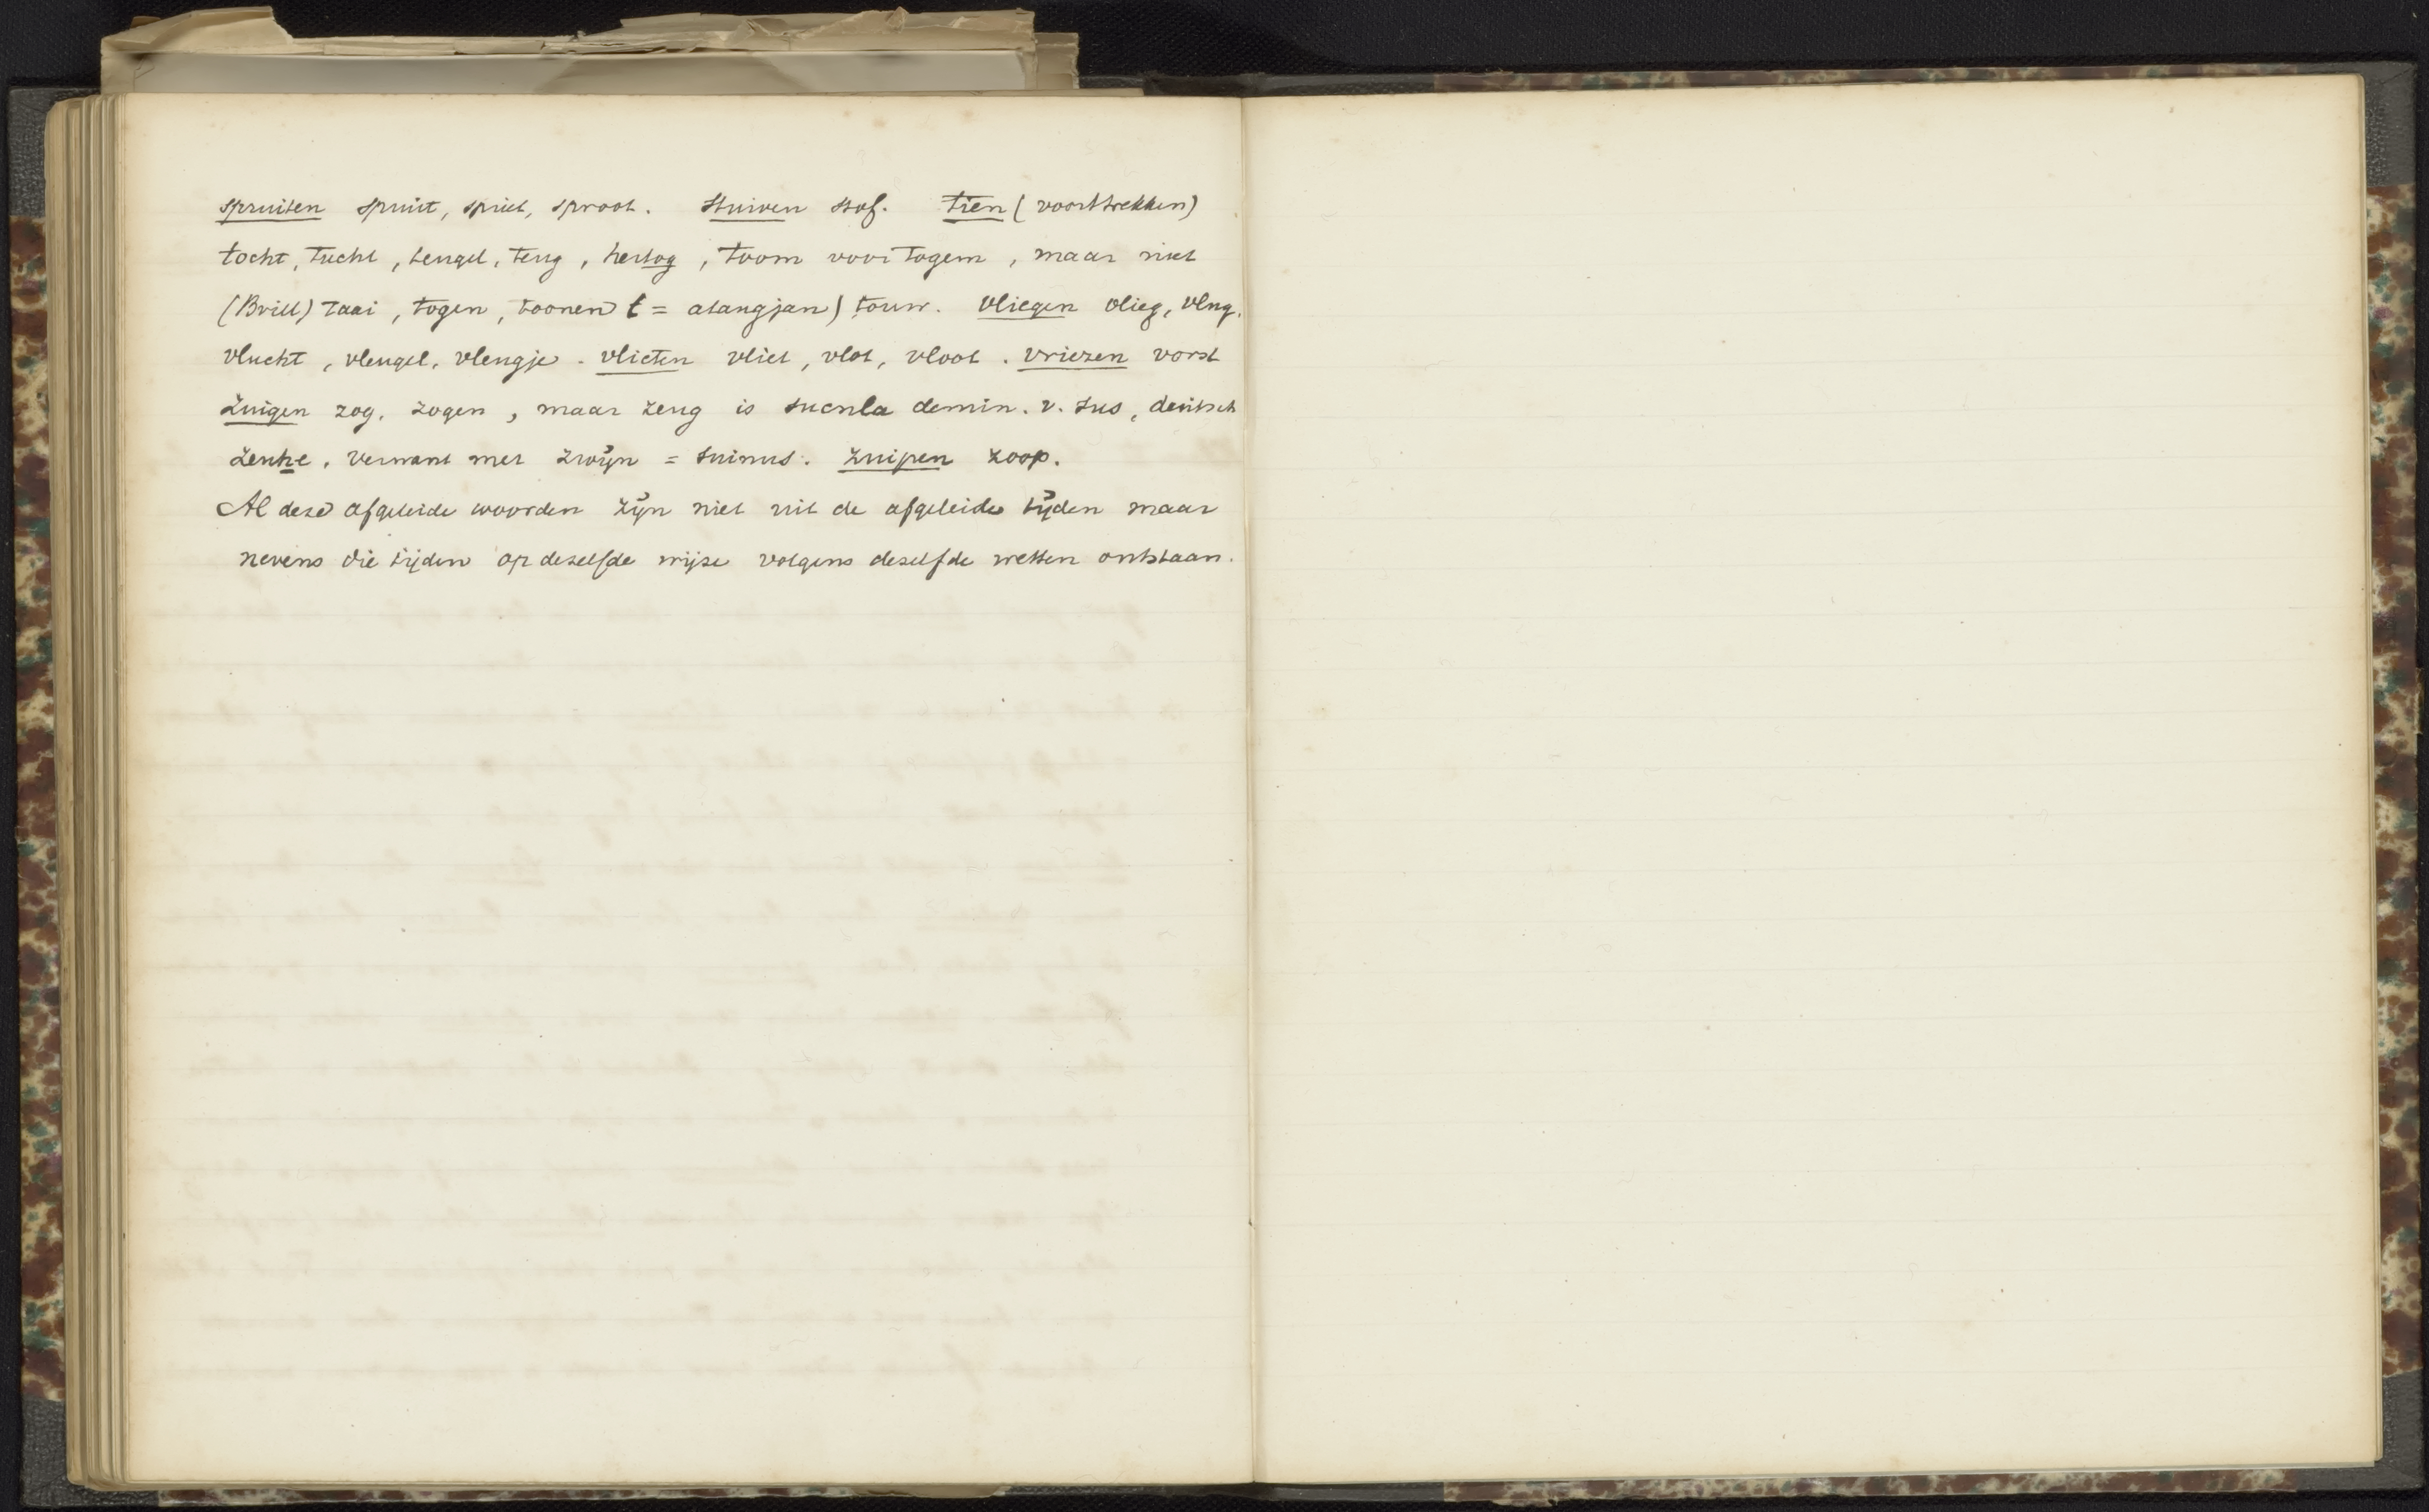 spruiten spuit, spriet, sproot. stuiven stof. tien (voorttrekken)
tocht, tucht, teugel, teug, hertog, toom voor togem, maar niet
(Brill) taai, togen, toonen t = atangjan) touw. vliegen vlieg, vlug,
vlucht, vleugel, vleugje. vlieten vliet, vlot, vloot. vriezen vorst
zuigen zog, zogen, maar zeug is sucula demin. v. sus, deutsch
zeuke, verwant met zwijn = suinus. zuipen zoop.
Al deze afgeleide woorden zijn niet uit de afgeleide tijden maar
nevens die tijden op dezelfde wijze volgens dezelfde wetten ontstaan.